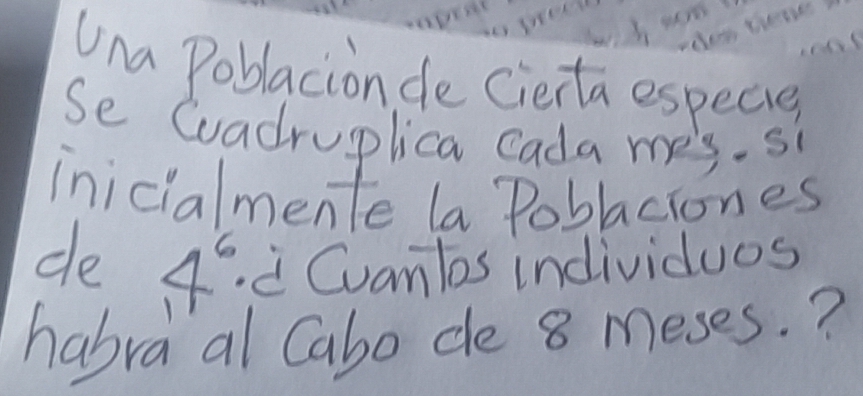 Una Poblaciòn de Cierta especie,
Se Cuadruplica Cada mes. si
inicialmente la Poblaciones
de 4⁶. ¿ Cuantos individuos
habrà al Cabo de 8 meses. ?